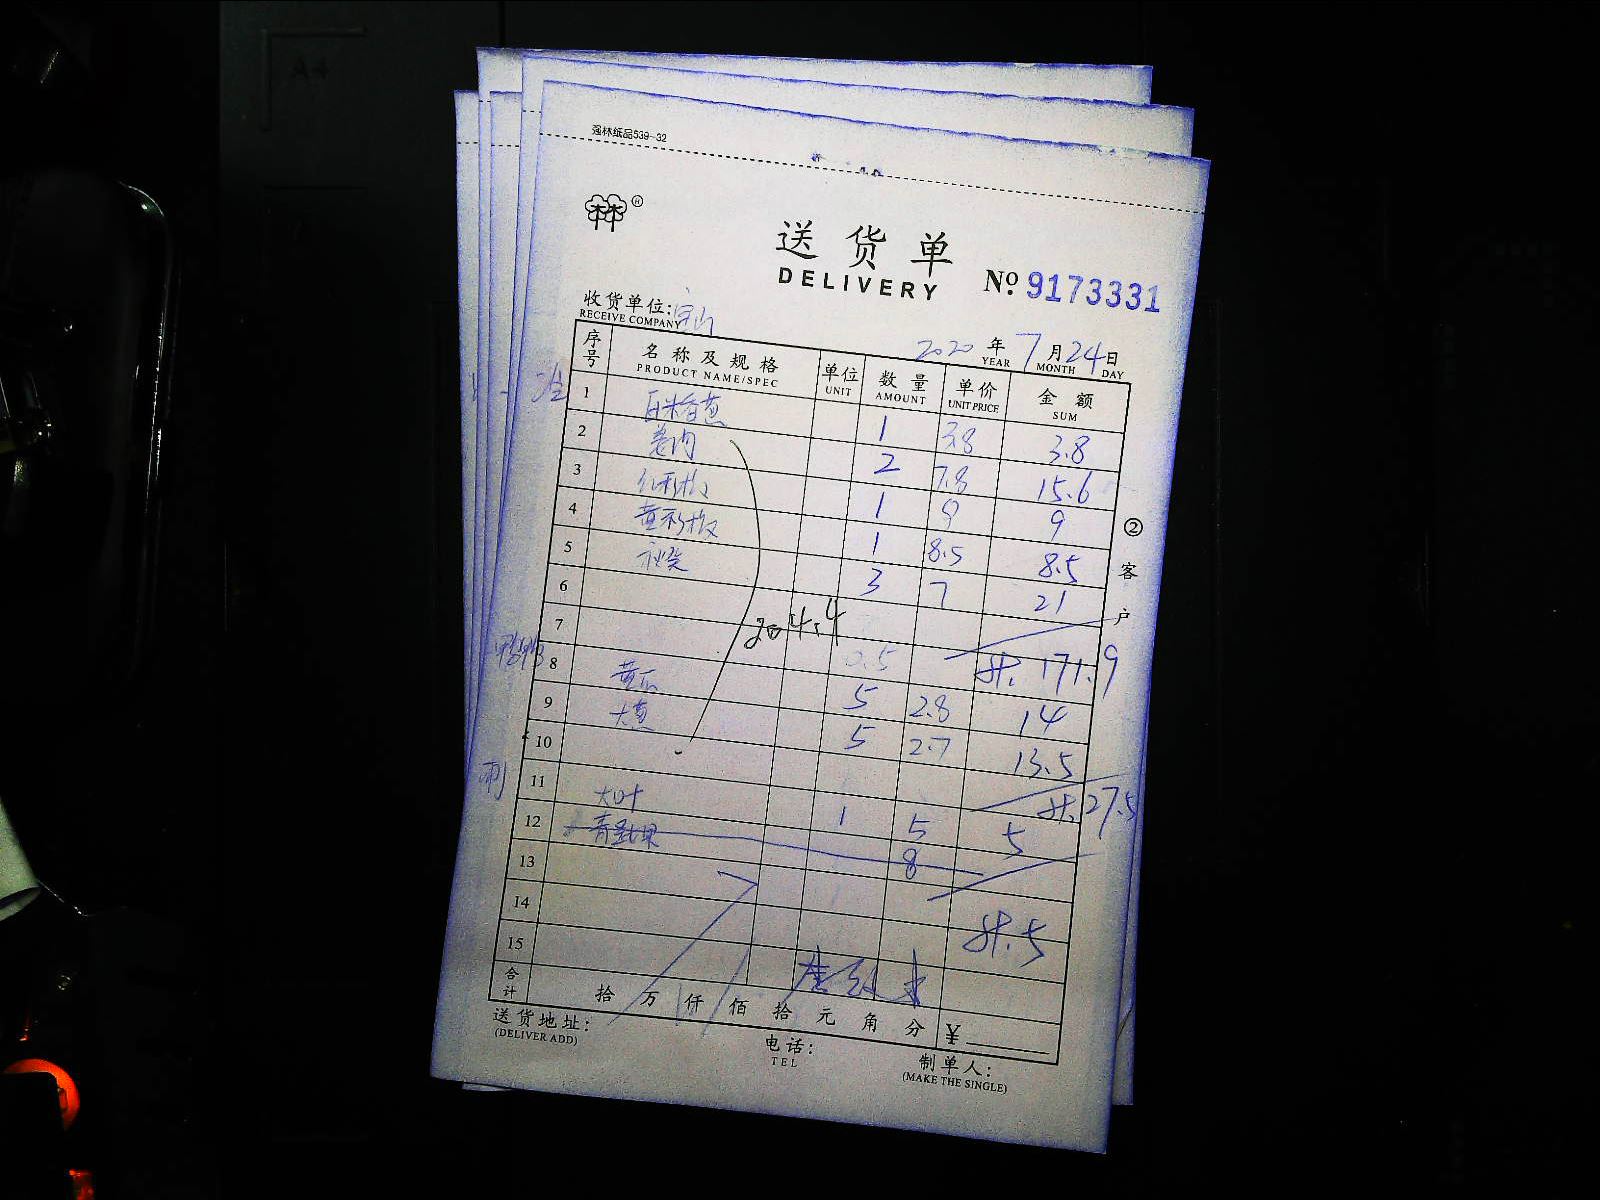 A4
强林纸品539-32
林®
送货单
DELIVERY
№ 9173331
收货单位:
RECEIVE COMPANY
2020 年 7 月 24 日
YEAR MONTH DAY
序号 名称及规格 单位 数量 单价 金额
PRODUCT NAME/SPEC UNIT AMOUNT UNIT PRICE SUM
1 百米香葱 1 3.8 3.8
2 姜肉 2 7.8 15.6
3 红彩椒 1 9 9
4 黄彩椒 1 8.5 8.5
5 秋葵 3 7 21
6
7 204.4 计. 171.9
8 黄瓜 5 2.8 14
9 大葱 5 2.7 13.5
10 计. 27.5
11 大叶 1 5 5
12 8
13
14 计.5
15
合计 拾 万 仟 佰 拾 元 角 分 ¥
送货地址:
(DELIVER ADD)
电话:
TEL
制单人:
(MAKE THE SINGLE)
②客户